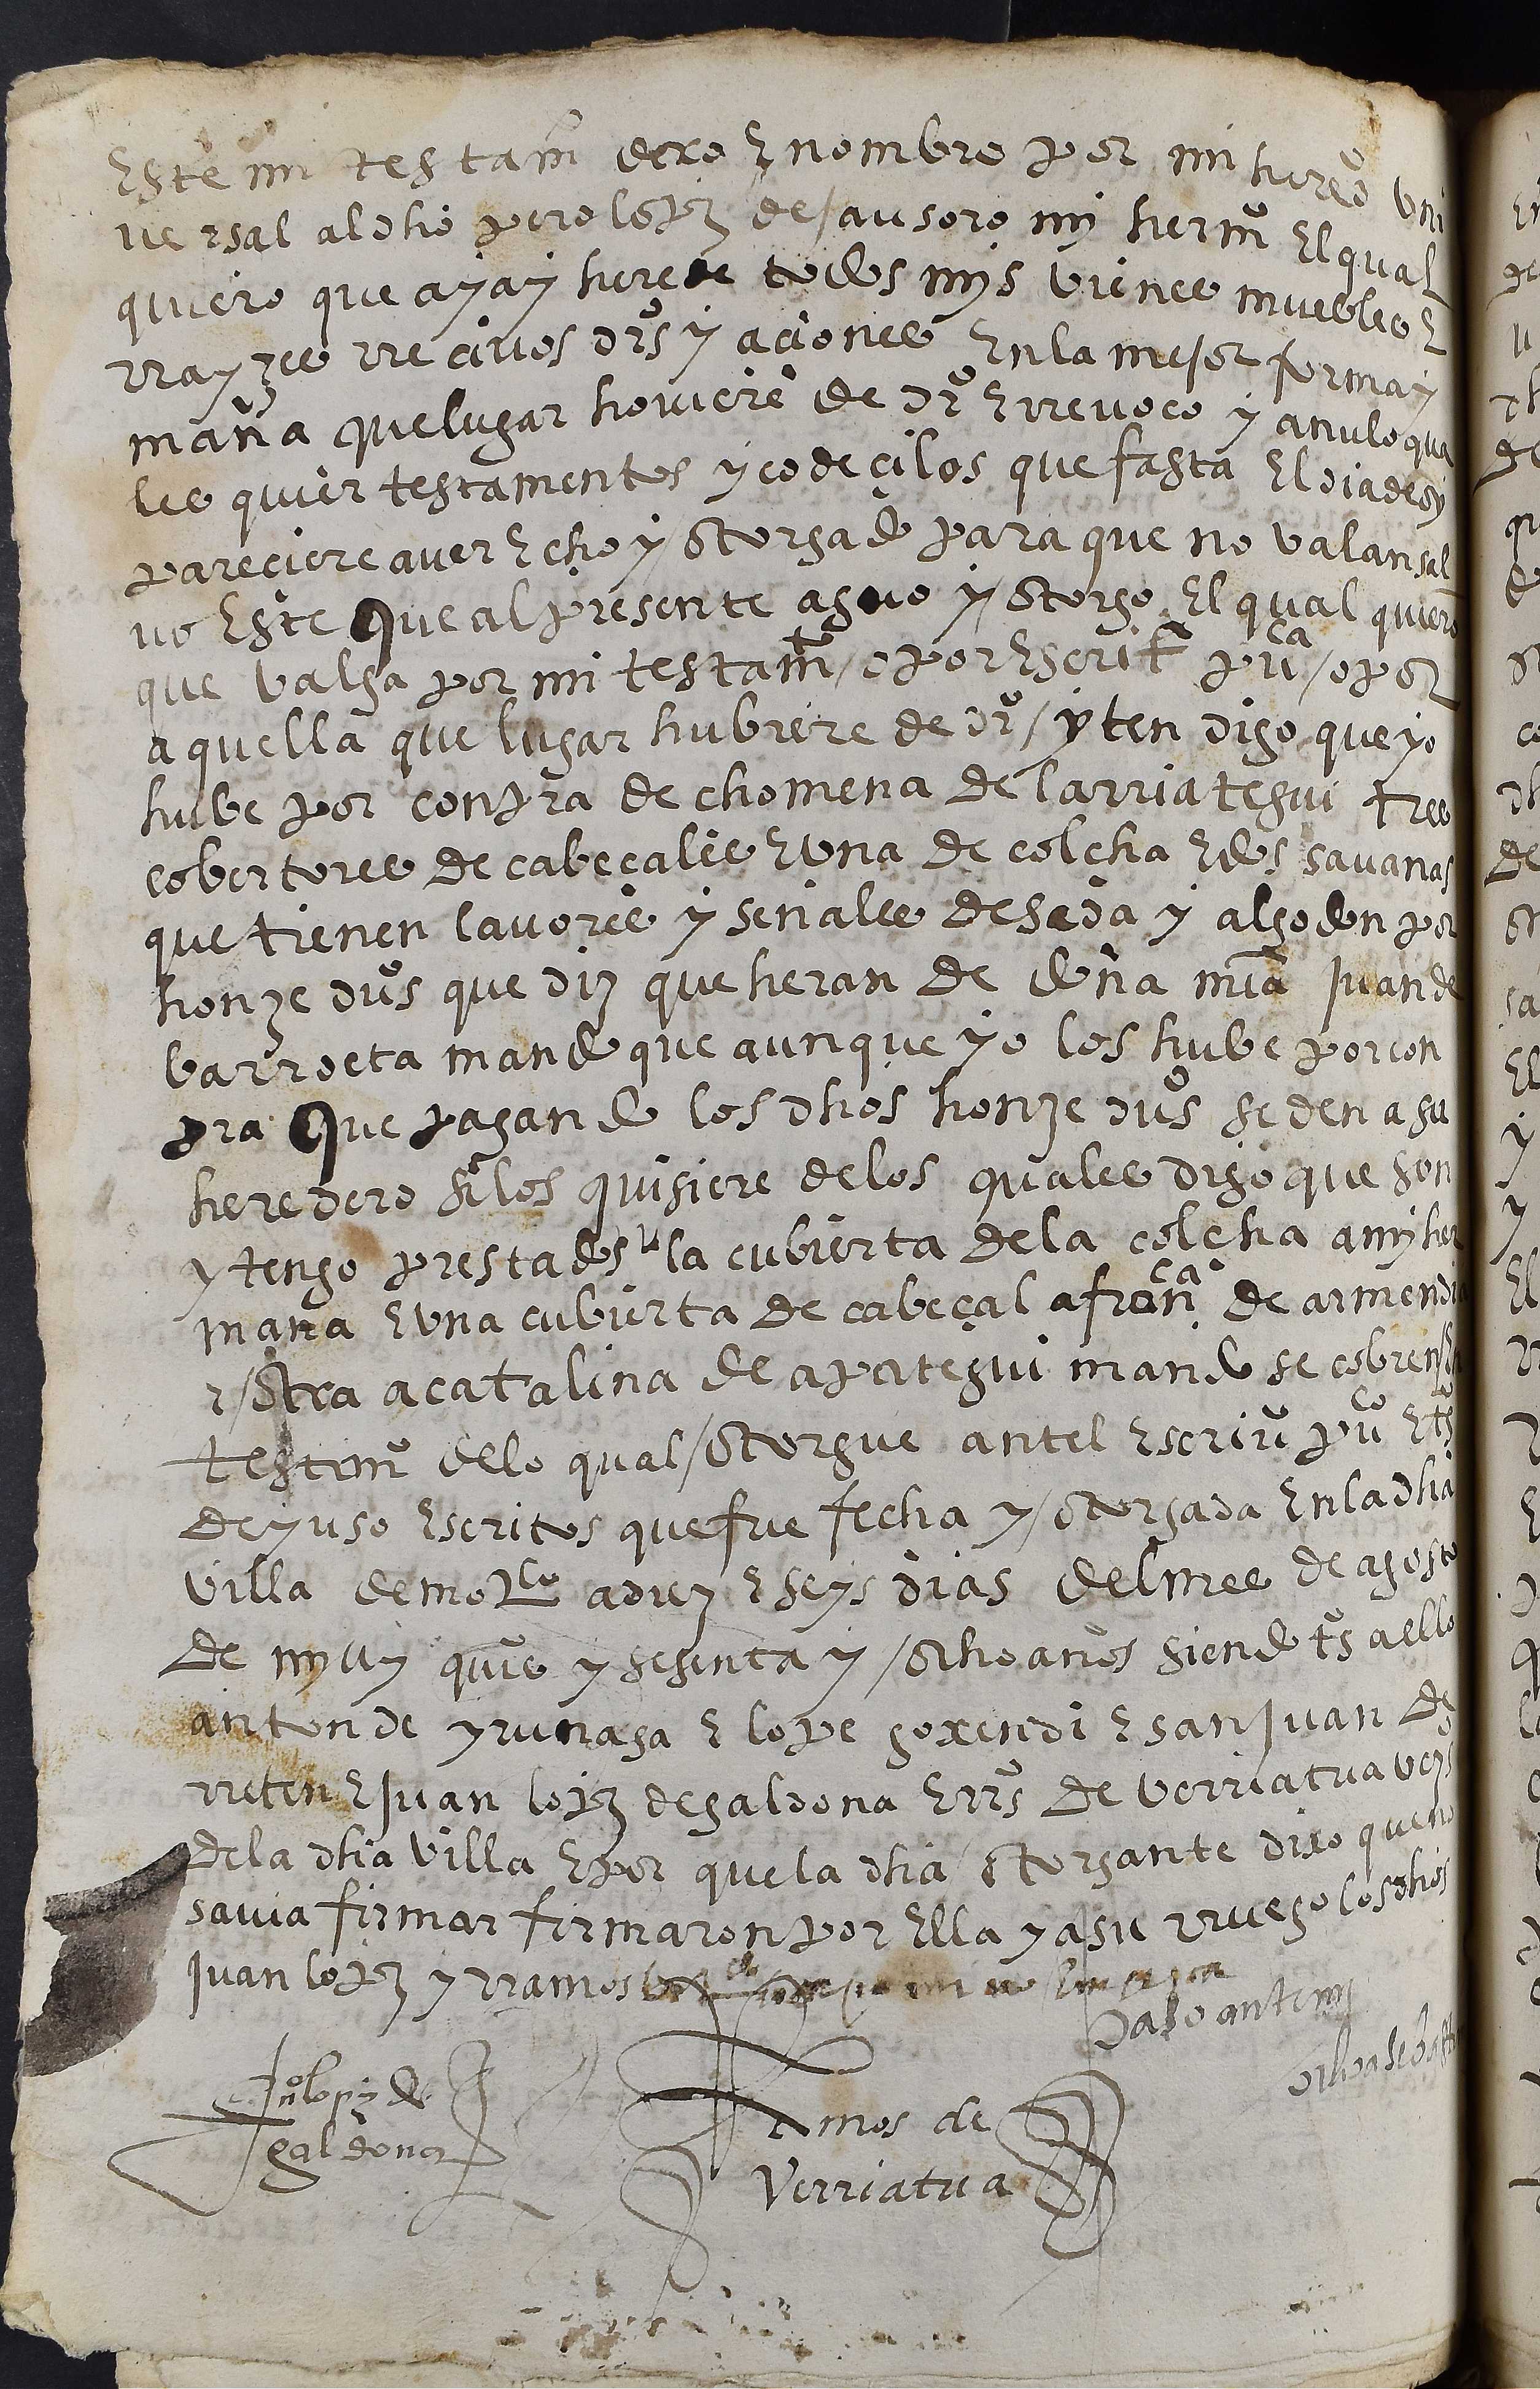 Este mi testamº dexo E nombro por mi heredº vni
uersal al dho pero lopz de/ausoro mi hermº El qual
quiero que aya y herede todos mys vienes muebles E
rrayzes rrecivos drºs y aciones En la mejor forma y
manª que lugar hoviere de drº E rrevoco y anulo qua
les quier testamentos y codecilos que fasta El dia de oy
pareciere aver Echo y/otorgado para que no valan sal
uo Este que al presente ago y/otorgo El qual quiero
que valga por mi testamtº/o por Escritª puca/o por
aquella que lugar hubiere de drº/yten digo que yo
hube por conpra de chomena de larriategui tres
cobertores de cabeçales E vna de colcha E dos savanas
que tienen lavores y señales de seda y algodon por
honze dus que diz que heran de doña mia juan de
barroeta mando que aunque yo los hube por con
pra que pagando los dhos honze dus se den a su
heredero si los quisiere de los quales digo que son
y tengo prestados la cubierta de la colcha a my her
mana E vna cubierta de cabeçal a franca de armendia
y/otra a catalina de apategui mando se cobren En
testimº de lo qual/otorgue antel Escriuº puco E tsº
de yuso Escritos que fue fecha y/otorgada En la dha
villa de mo a diez E seys dias del mes de agosto
de myll quis y sesenta y/ocho años siendo tsº a ello
anton de yrunaga E lope goxendi E san juan de
rreten E juan lopz de galdona E rrs de verriatua vezºs
de la dha villa E por que la dha otorgante dixo que no
savia firmar firmaron por Ella y a su rruego los dhos
juan lopz y rramos
Paso ante my
Juº lopz de
galdona
Ramos de
Verriatua